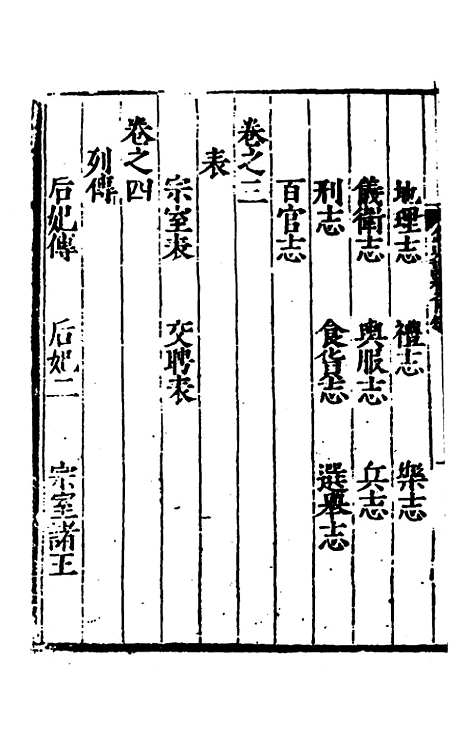 地理志 禮志 樂志
儀衛志 輿服志 兵志
刑志 食貨志 選舉志
百官志
卷之三
表
宗室表 交聘表
卷之四
列傳
后妃傳 后妃二 宗室諸王